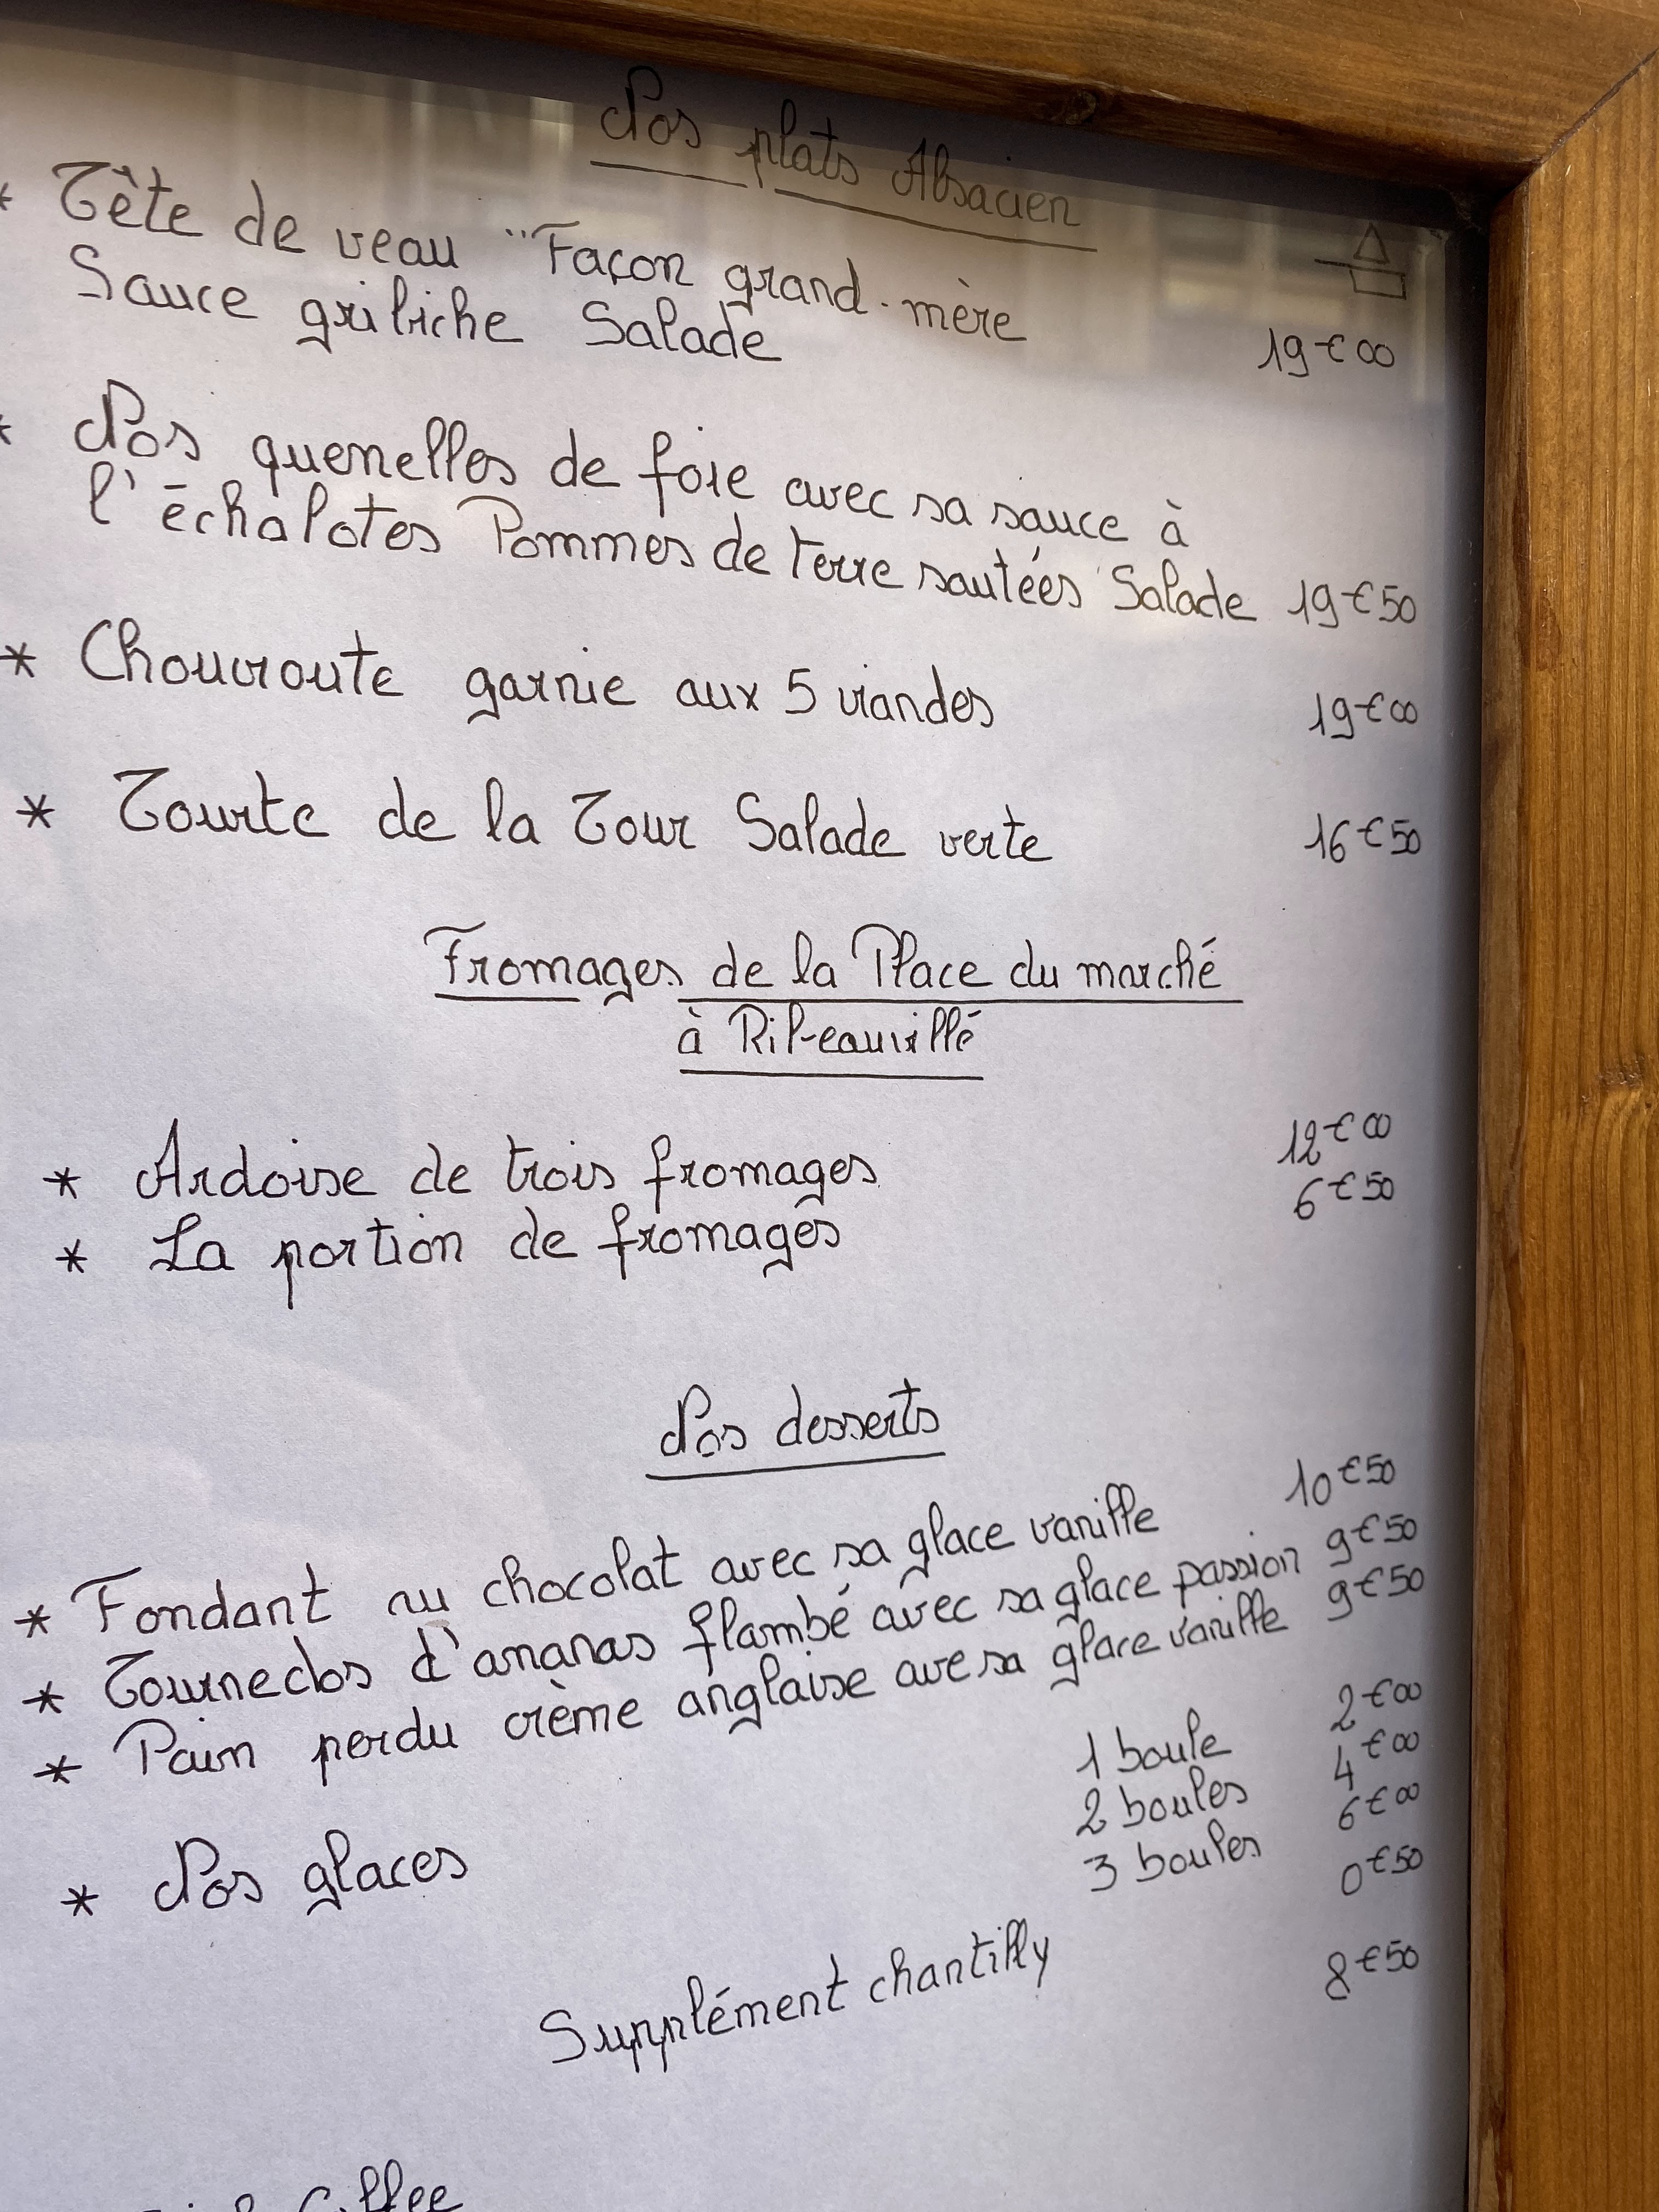 Nos plats Alsacien
* Tête de veau "Façon grand-mère
Sauce gribiche Salade 19€00
* Nos quenelles de foie avec sa sauce à
l'échalotes Pommes de terre sautées Salade 19€50
* Choucroute garnie aux 5 viandes 19€00
* Tourte de la Tour Salade verte 16€50
Fromages de la Place du marché
à Ribeauvillé
* Ardoise de trois fromages 12€00
* La portion de fromages 6€50
Nos desserts
* Fondant au chocolat avec sa glace vanille 10€50
* Tournedos d'ananas flambé avec sa glace passion 9€50
* Pain perdu crème anglaise ave sa glace vanille 9€50
1 boule 2€00
2 boules 4€00
* Nos glaces 3 boules 6€00
Supplément chantilly 0€50
8€50